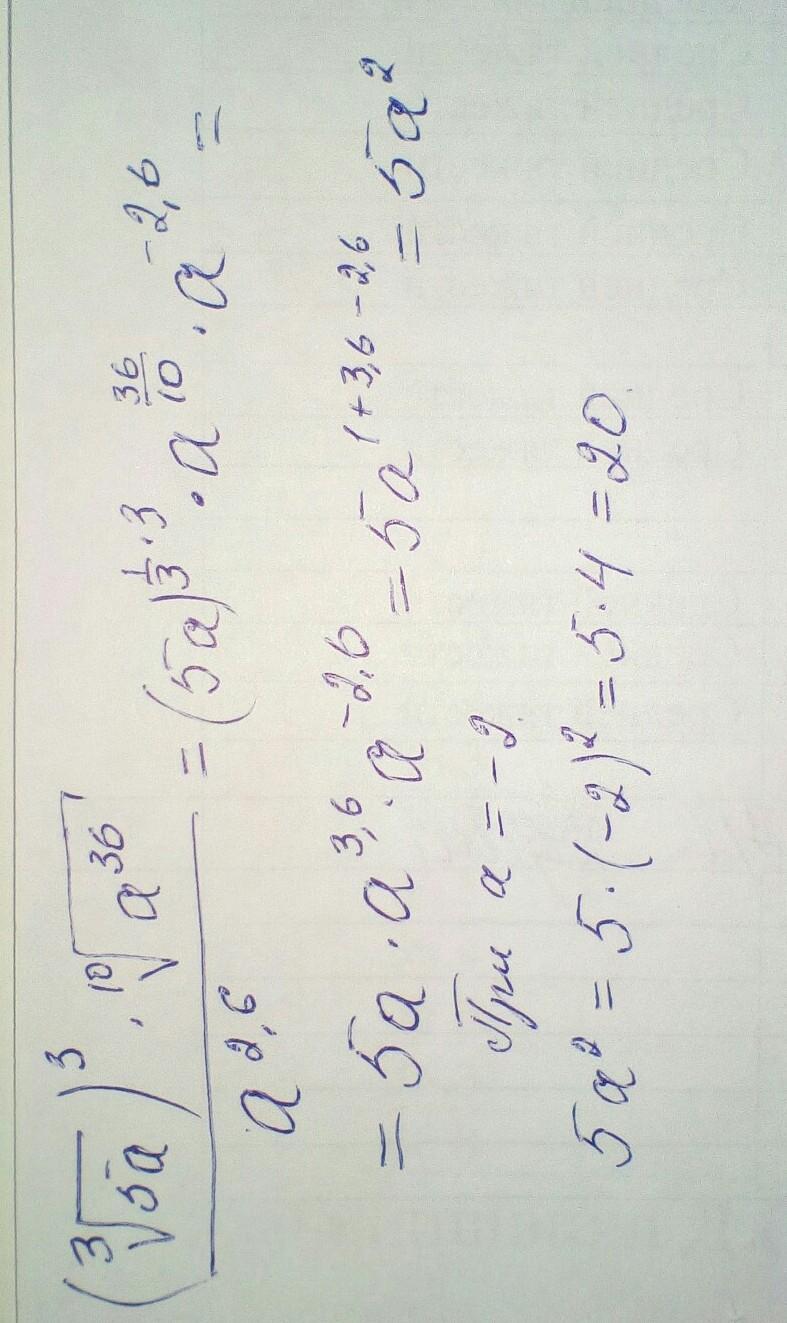 (³√5a)³ · ¹⁰√a³⁶ / a^2,6 = (5a)^(1/3 · 3) · a^(36/10) · a^-2,6 =
= 5a · a^3,6 · a^-2,6 = 5a^(1+3,6-2,6) = 5a²
При a = -2
5a² = 5·(-2)² = 5·4 = 20